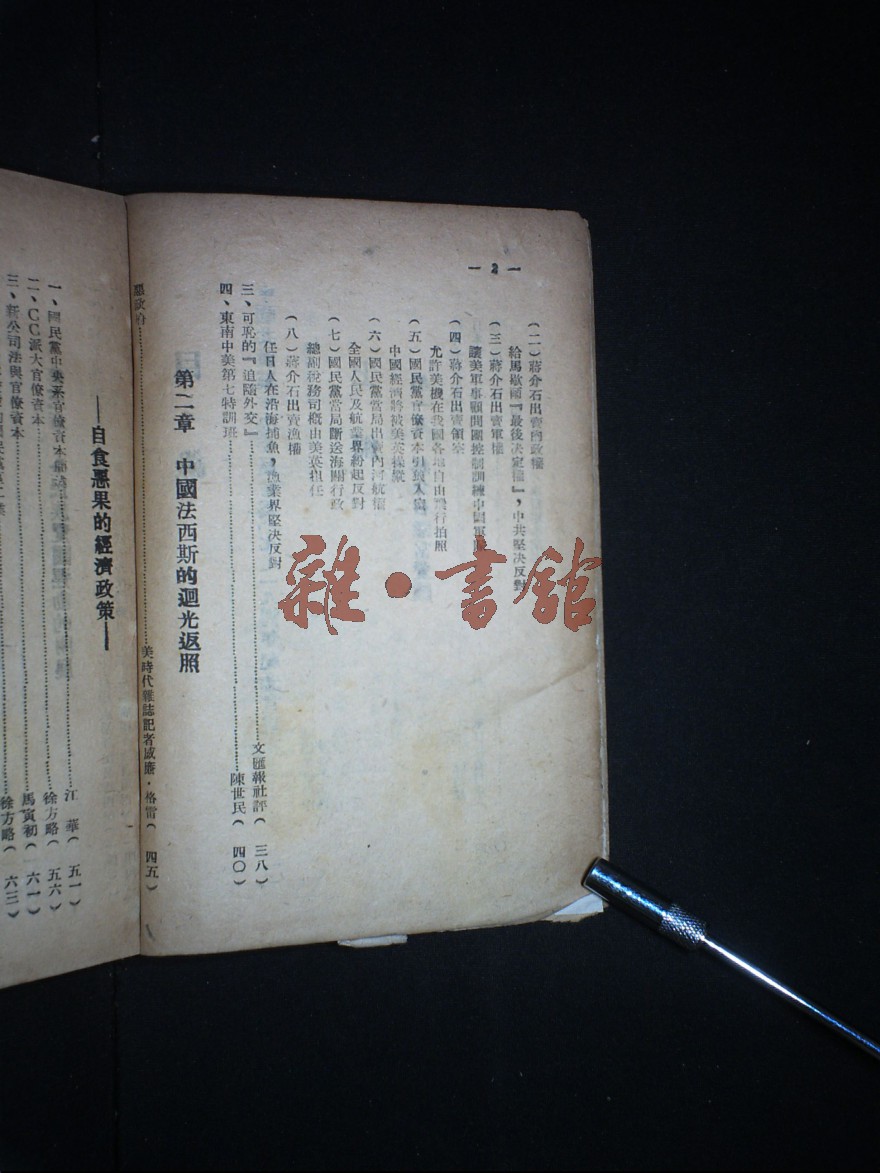 — 2 —
(二)蔣介石出賣內政權
給馬歇爾『最後決定權』,中共堅決反對
(三)蔣介石出賣軍權
讓美軍事顧問團控制訓練中國軍隊
(四)蔣介石出賣領空
允許美機在我國各地自由飛行拍照
(五)國民黨官僚資本引狼入室
中國經濟將被美英操縱
(六)國民黨當局出賣內河航權
全國人民及航業界紛起反對
(七)國民黨當局斷送海關行政
總副稅務司概由美英担任
(八)蔣介石出賣漁權
任日人在沿海捕魚,漁業界堅決反對
三、可恥的『追隨外交』……文匯報社評(三八)
四、東南中美第七特訓班……陳世民(四〇)
第二章 中國法西斯的迴光返照
惡政治……美時代雜誌記者威廉·格雷(四五)
——自食惡果的經濟政策——
一、國民黨中央系官僚資本……江 華(五一)
二、CC派大官僚資本……徐方略(五六)
三、新公司法與官僚資本……馬寅初(六一)
徐方略(六三)
雜·書館